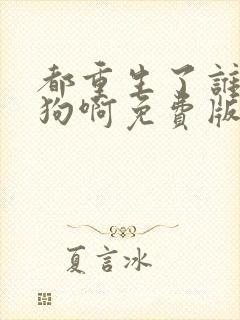 都重生了誰
狗啊免費版
夏言冰